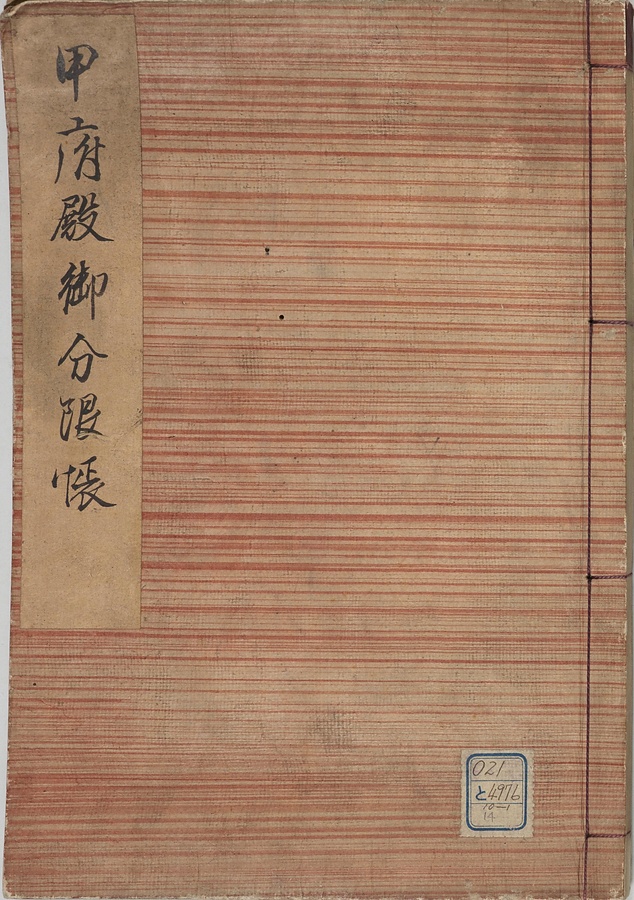 甲府殿御分限帳
021
と4976
10-1
14